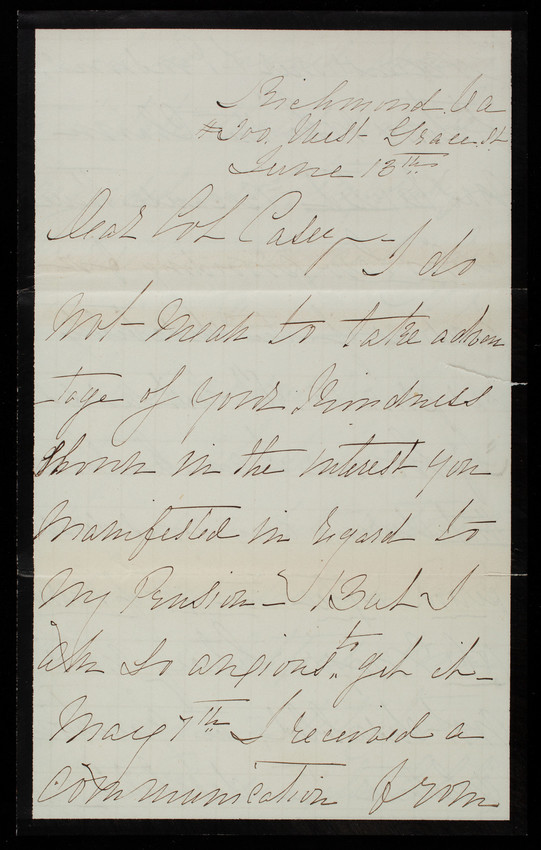 Richmond Va
#200. West Grace. St
June 13th
Dear Col Casey - I do
not mean to take advan
-tage of your kindness
shown in the interest you
manifested in regard to
my Pension - But I
am so anxious to get it -
May 7th I received a
communication from